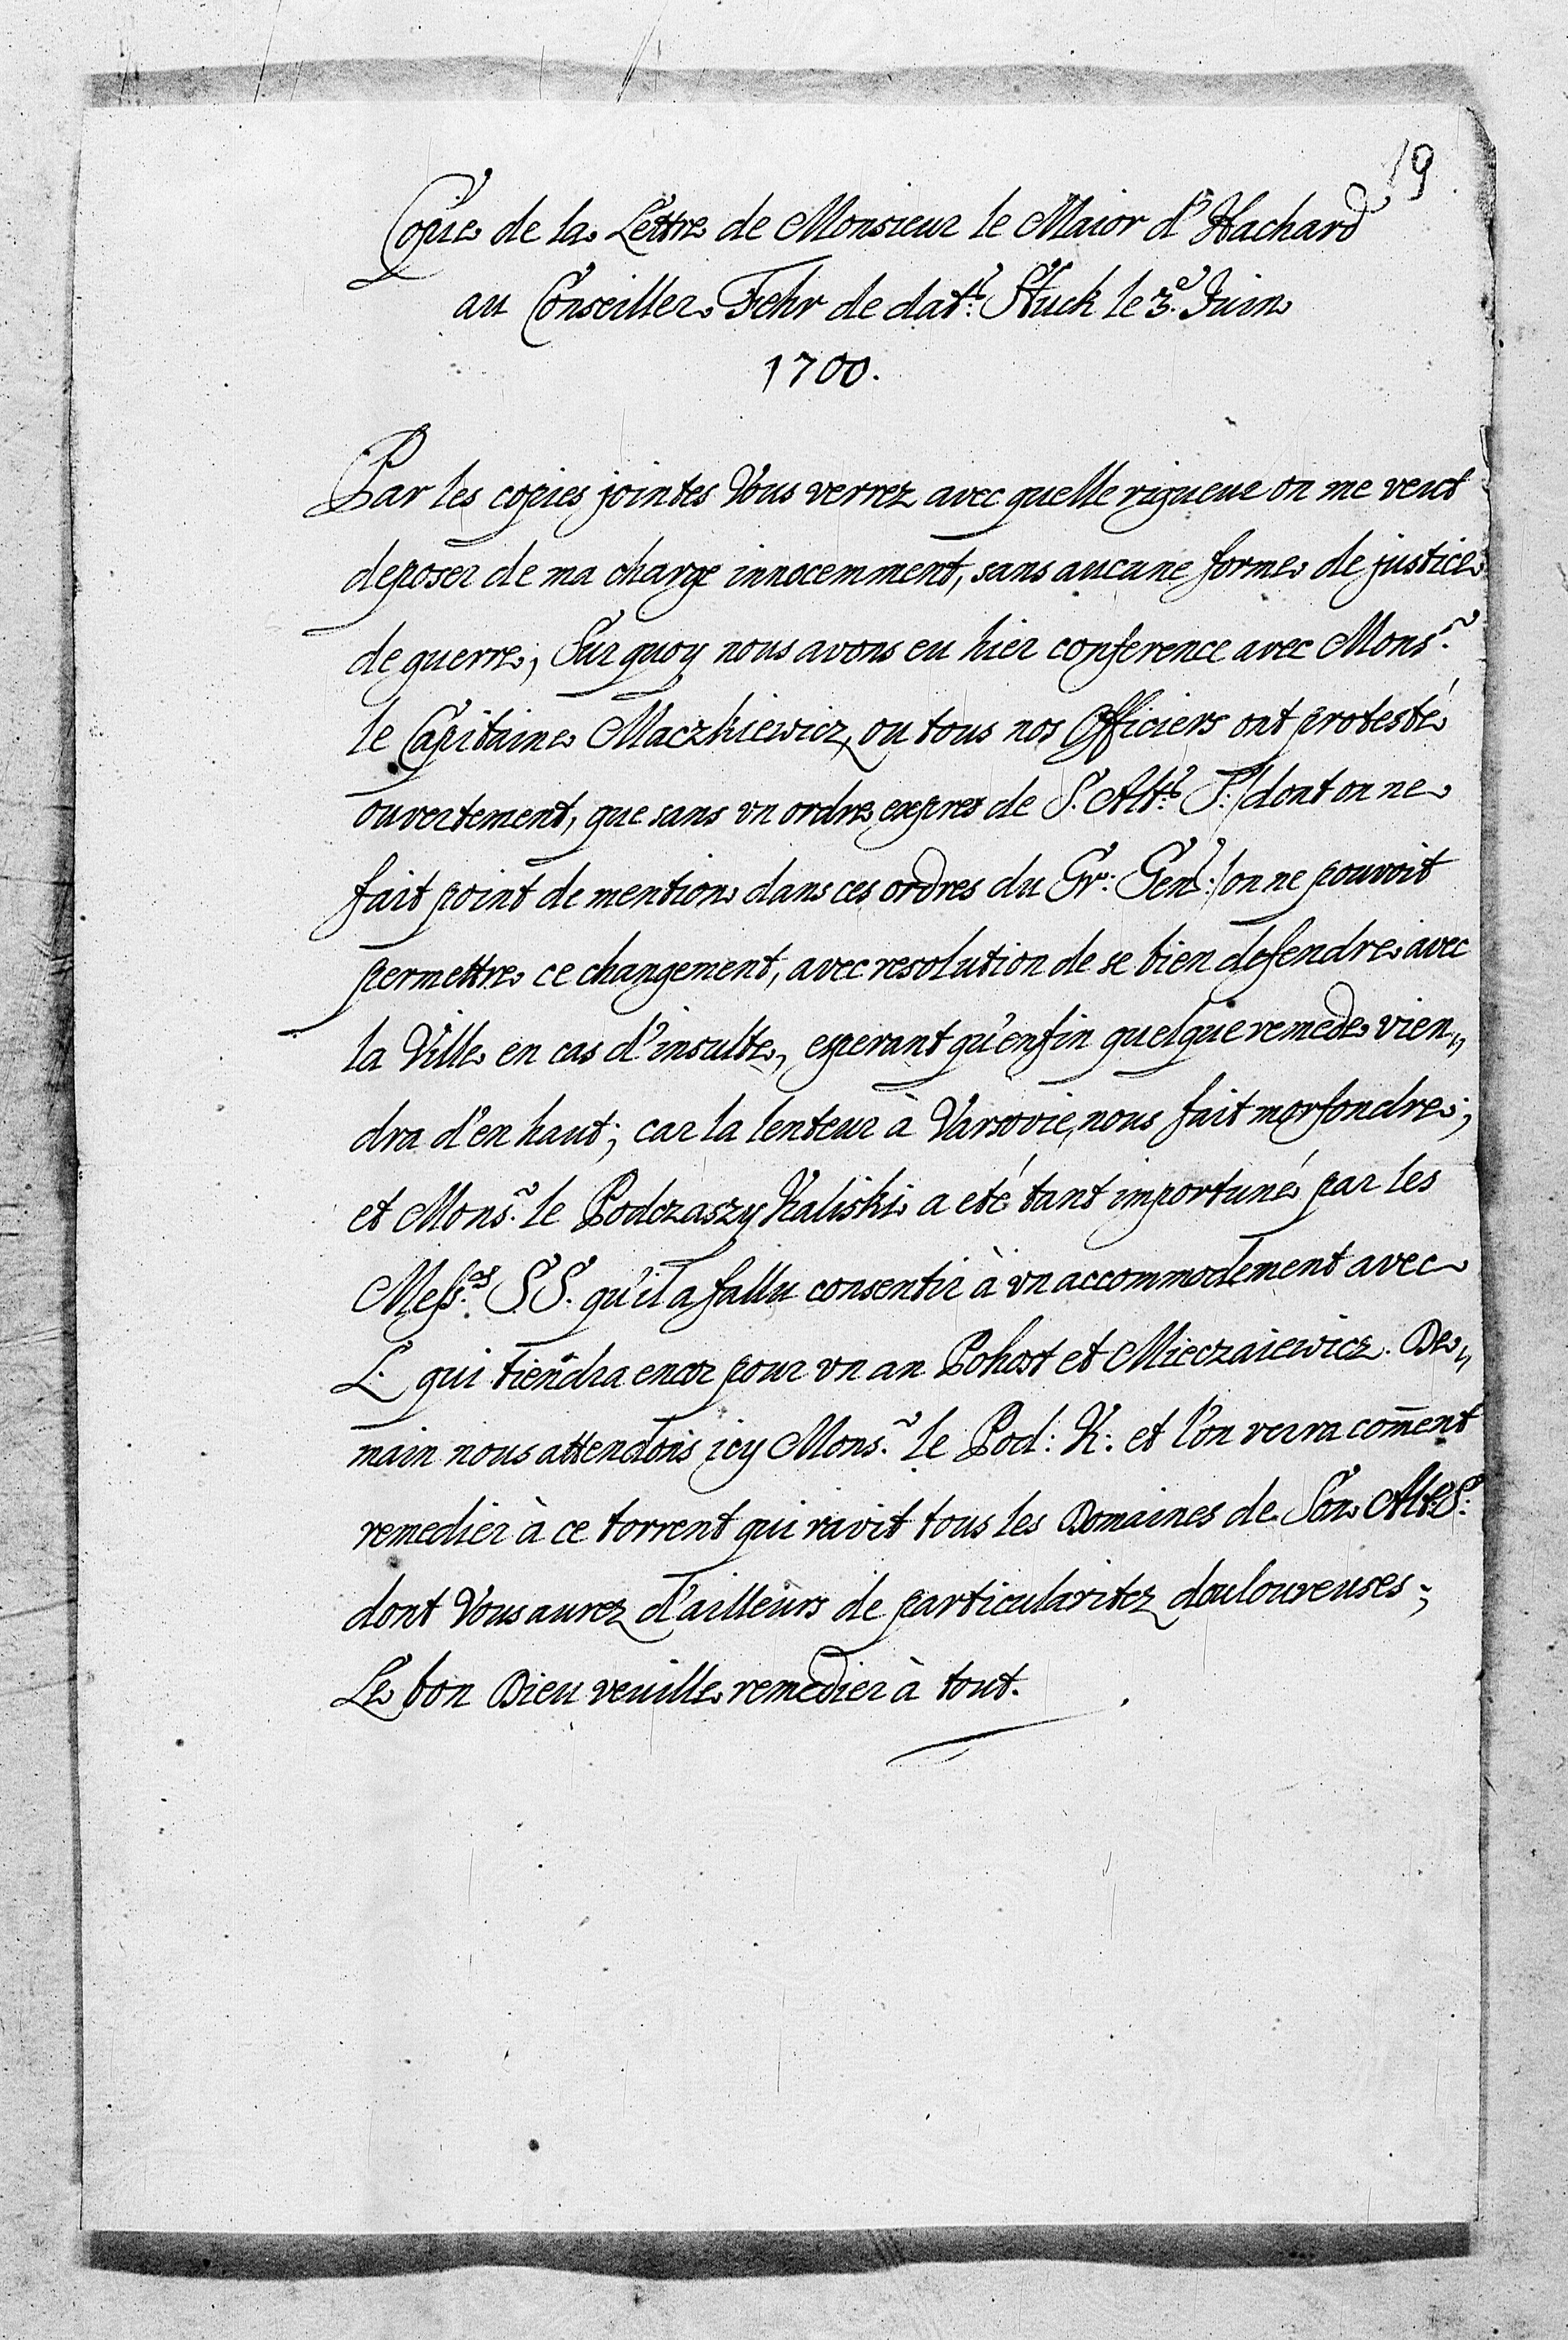 19
Copie de la Lettre de Monsieur le Maior d'Hachard
au Conseiller Fehr de dat: Sluck le 3.e Juin
1700.
Par les copies jointes Vous verrez avec quelle rigueur on me veut
deposer de ma charge innocemment, sans aucune forme de justice
de guerre; Sur quoy nous avons eu hier conference avec Monsr.
le Capitaine Maczkiewicz, ou tous nos Officiers ont protesté
ouvertement, que sans un ordre expres de S. Alt: S: /dont on ne
fait point de mention dans ces ordres du Gr: Genl:/ on ne pouvoit
permettre ce changement, avec resolution de se bien defendre avec
la Ville en cas d'insulte, esperant qu'enfin quelque remede vien„
dra d'en haut; car la lenteur à Varsovie, nous fait morfondre;
et Monsr. le Podczaszy Kaliski a eté tant importuné par les
Messrs. SS. qu'il a fallu consentir à un accommodement avec
L. qui tiendra encor pour un an Pohost et Mieczaiewicz. De„
main nous attendons icy Monsr. le Pod: K: et l'on verra com̄ent
remedier à ce torrent qui ravit tous les Domaines de Son Alt: S:
dont Vous aurez d'ailleurs de particularitez douloureuses;
Le bon Dieu veuille remedier à tout.